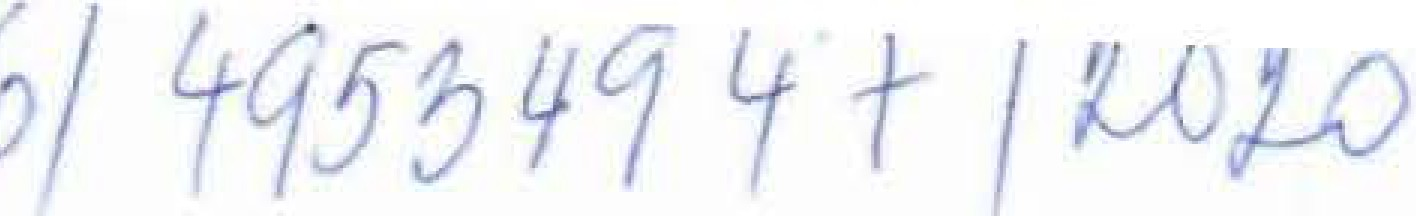 6/ 4953494 + / 2020